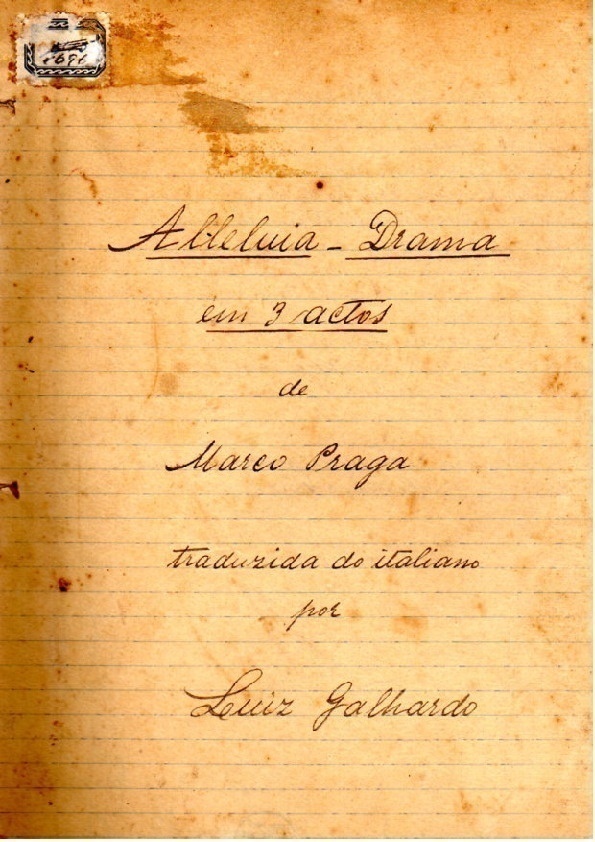 Alleluia - Drama
em 3 actos
de
Marco Praga
traduzida do italiano
por
Luiz Galhardo